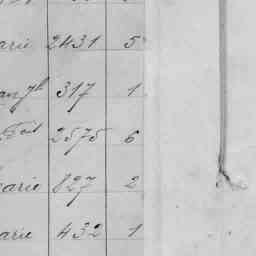 arie 2431 5
317 1
2575 6
arie 827 2
arie 432 1